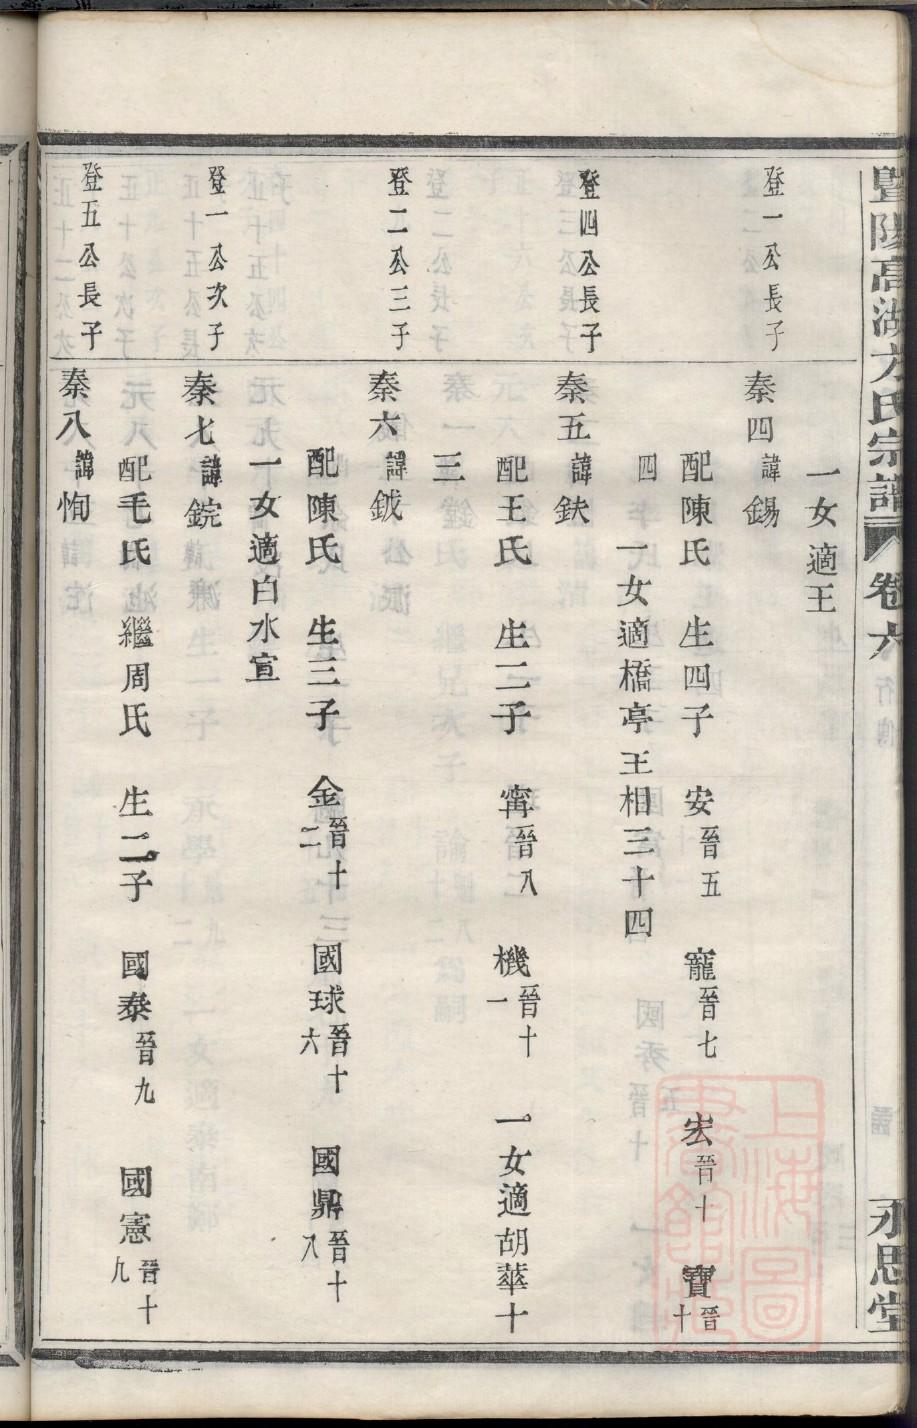 暨陽高湖方氏宗譜 卷六 行傳 永思堂
一女適王
登一公長子 秦四 諱錫
配陳氏 生四子 安晉五 寵晉七 宏晉十 寶晉十
四 一女適橋亭王相三十四
登四公長子 秦五 諱鈌
配王氏 生二子 甯晉八 機晉十一 一女適胡華十
三
登二公三子 秦六 諱鉞
配陳氏 生三子 金晉十二 國球晉十六 國鼎晉十八
一女適白水宣
登一公次子 秦七 諱鋺
配毛氏 繼周氏 生二子 國泰晉九 國憲晉十九
登五公長子 秦八 諱恂
上海圖書館藏